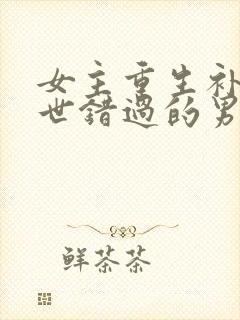 女主重生补
世错过的男
鲜茶茶